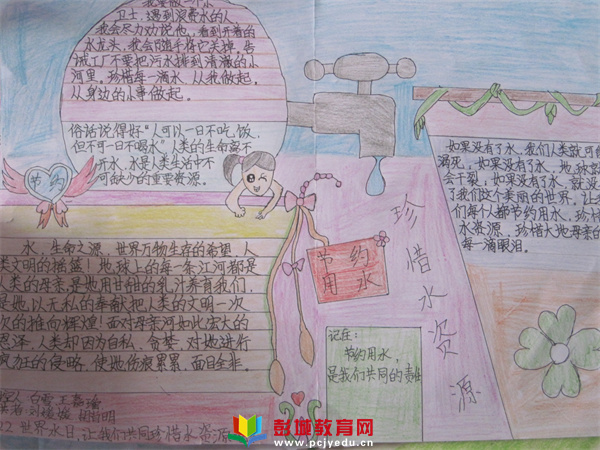 我要做一个小
卫士,遇到浪费水的人,
我会尽力劝说他,看到开着的
水龙头,我会随手将它关掉,告
诫工厂不要把污水排到清澈的小
河里。珍惜每一滴水,从我做起,
从身边的小事做起。
俗话说得好"人可以一日不吃饭,
但不可一日不喝水"人类的生命离不
开水,水是人类生活中不
可缺少的重要资源。
节约
水,生命之源,世界万物生存的希望,人
类文明的摇篮!地球上的每一条江河都是
人类的母亲,是她用甘甜的乳汁养育我们,
是她以无私的奉献把人类的文明一次
次的推向辉煌!面对母亲河如此浩大的
恩泽,人类却因为自私、贪婪,对她进行
疯狂的侵略,使她伤痕累累,面目全非。
白雪 王嘉璠
22世界水日,让我们共同珍惜水资源
节约
用水
珍惜水资源
记住:
节约用水,
是我们共同的责任
如果没有了水,我们人类就可能
渴死,如果没有了水,地球就
会干裂,如果没有了水,就没
了我们这个美丽的世界,让
们每个人都节约用水,珍惜
水资源,珍惜大地母亲的
每一滴眼泪。
彭城教育网
www.pcjyedu.cn